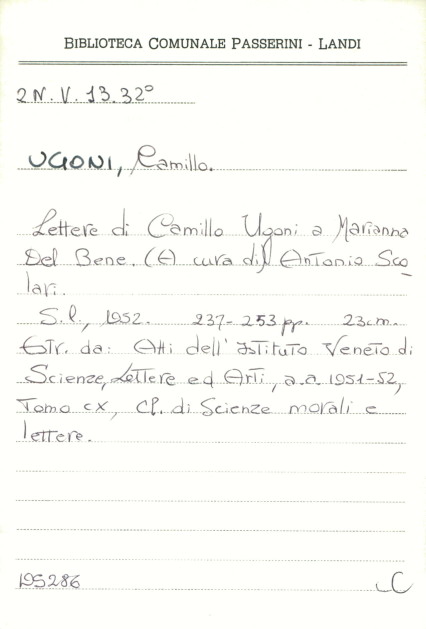 BIBLIOTECA COMUNALE PASSERINI - LANDI
2N.V.13.32°
UGONI, Camillo.
Lettere di Camillo Ugoni a Marianna
Del Bene. (A cura di) Antonio Sco
lari.
S.l., 1952. 237-253 pp. 23 cm.
Estr. da: Atti dell'Istituto Veneto di
Scienze, Lettere ed Arti, a.a. 1951-52,
Tomo CX, Cl. di Scienze morali e
lettere.
195286
C